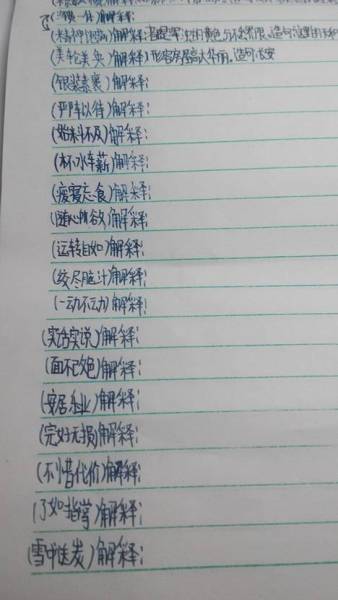 解释:
(浑然一体)解释:
解释:
(美轮美奂)解释:形容房屋高大华丽。
(银装素裹)解释:
(严阵以待)解释:
(始料不及)解释:
(杯水车薪)解释:
(废寝忘食)解释:
(随心所欲)解释:
(运转自如)解释:
(绞尽脑汁)解释:
(一动不动)解释:
(实话实说)解释:
(面不改色)解释:
(安居乐业)解释:
(完好无损)解释:
(不惜代价)解释:
(了如指掌)解释:
(雪中送炭)解释: